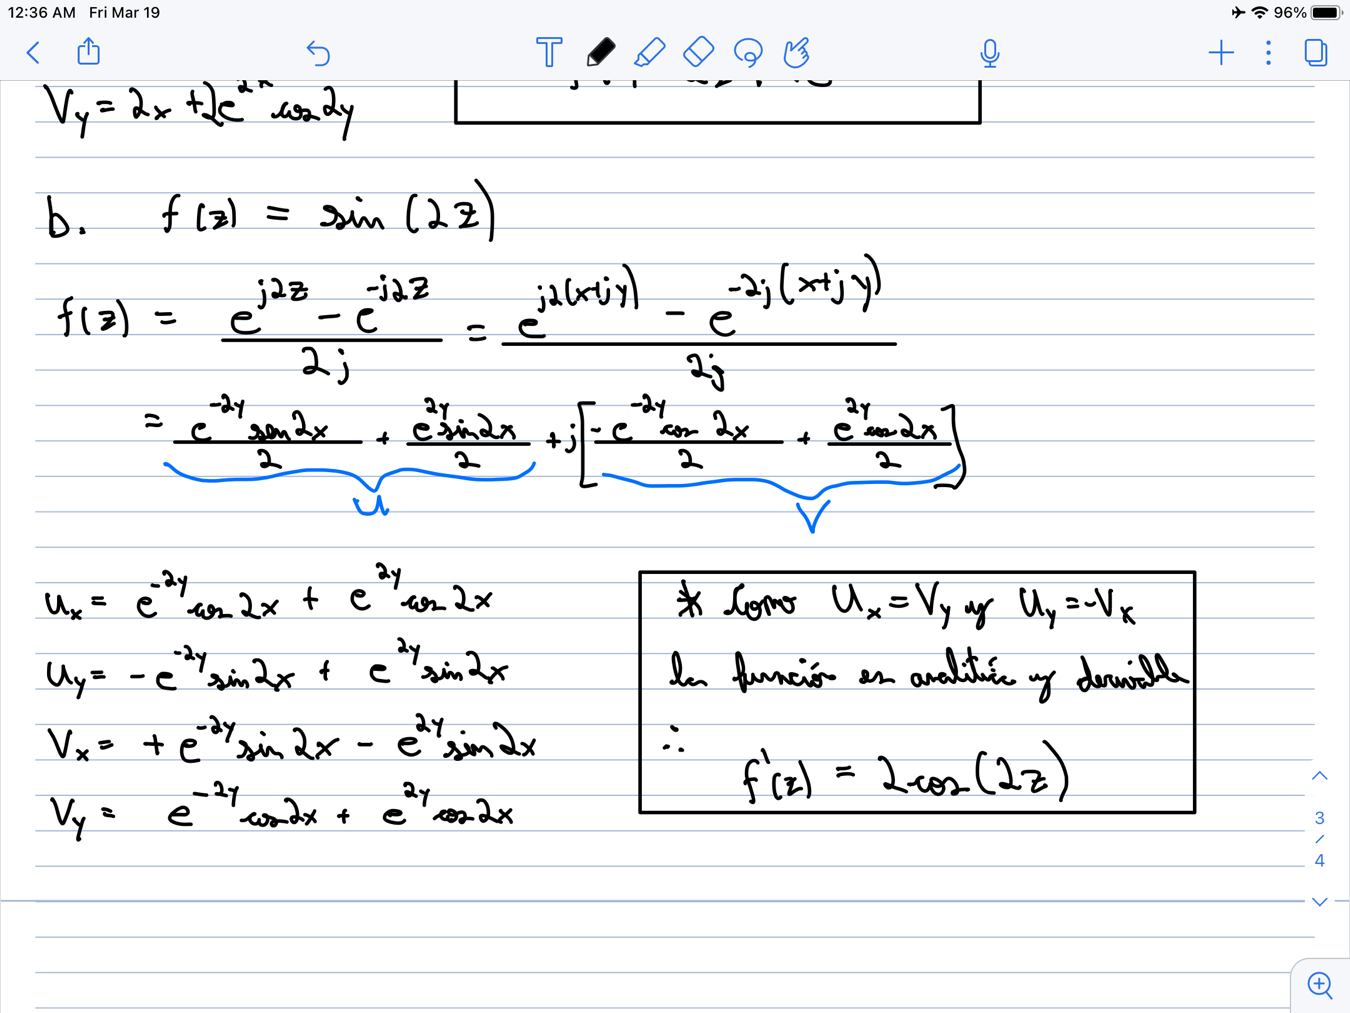 12:36 AM Fri Mar 19 96%
Vy = 2x + 2e^{2x} cos 2y
b. f(z) = sin(2z)
f(z) = (e^{j2z} - e^{-j2z})/2j = (e^{j2(x+jy)} - e^{-2j(x+jy)})/2j
= (e^{-2y} sen 2x)/2 + (e^{2y} sin 2x)/2 + j[-(e^{-2y} cos 2x)/2 + (e^{2y} cos 2x)/2]
U V
Ux = e^{-2y} cos 2x + e^{2y} cos 2x
Uy = -e^{-2y} sin 2x + e^{2y} sin 2x
Vx = +e^{-2y} sin 2x - e^{2y} sin 2x
Vy = e^{-2y} cos 2x + e^{2y} cos 2x
* Como Ux = Vy y Uy = -Vx
la función es analítica y derivable
∴
f'(z) = 2 cos(2z)
3
/
4